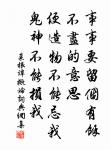 事事要留個有餘
不盡的意思
便造物不能忌我
鬼神不能損我
菜根譚概論詞與網集